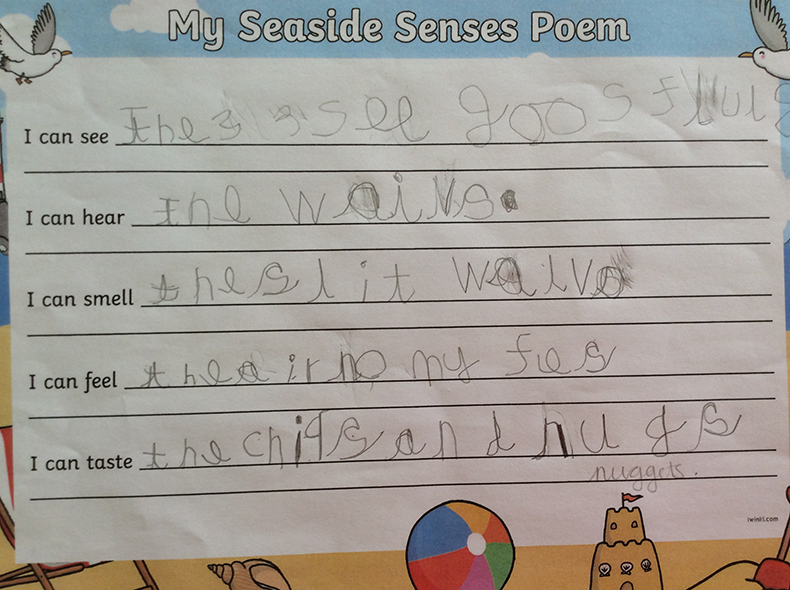 My Seaside Senses Poem
I can see the see goos flu
I can hear the waivs
I can smell the slit waivs
I can feel the air no my fes
I can taste the chips and nugs
nuggets.
twinkl.com